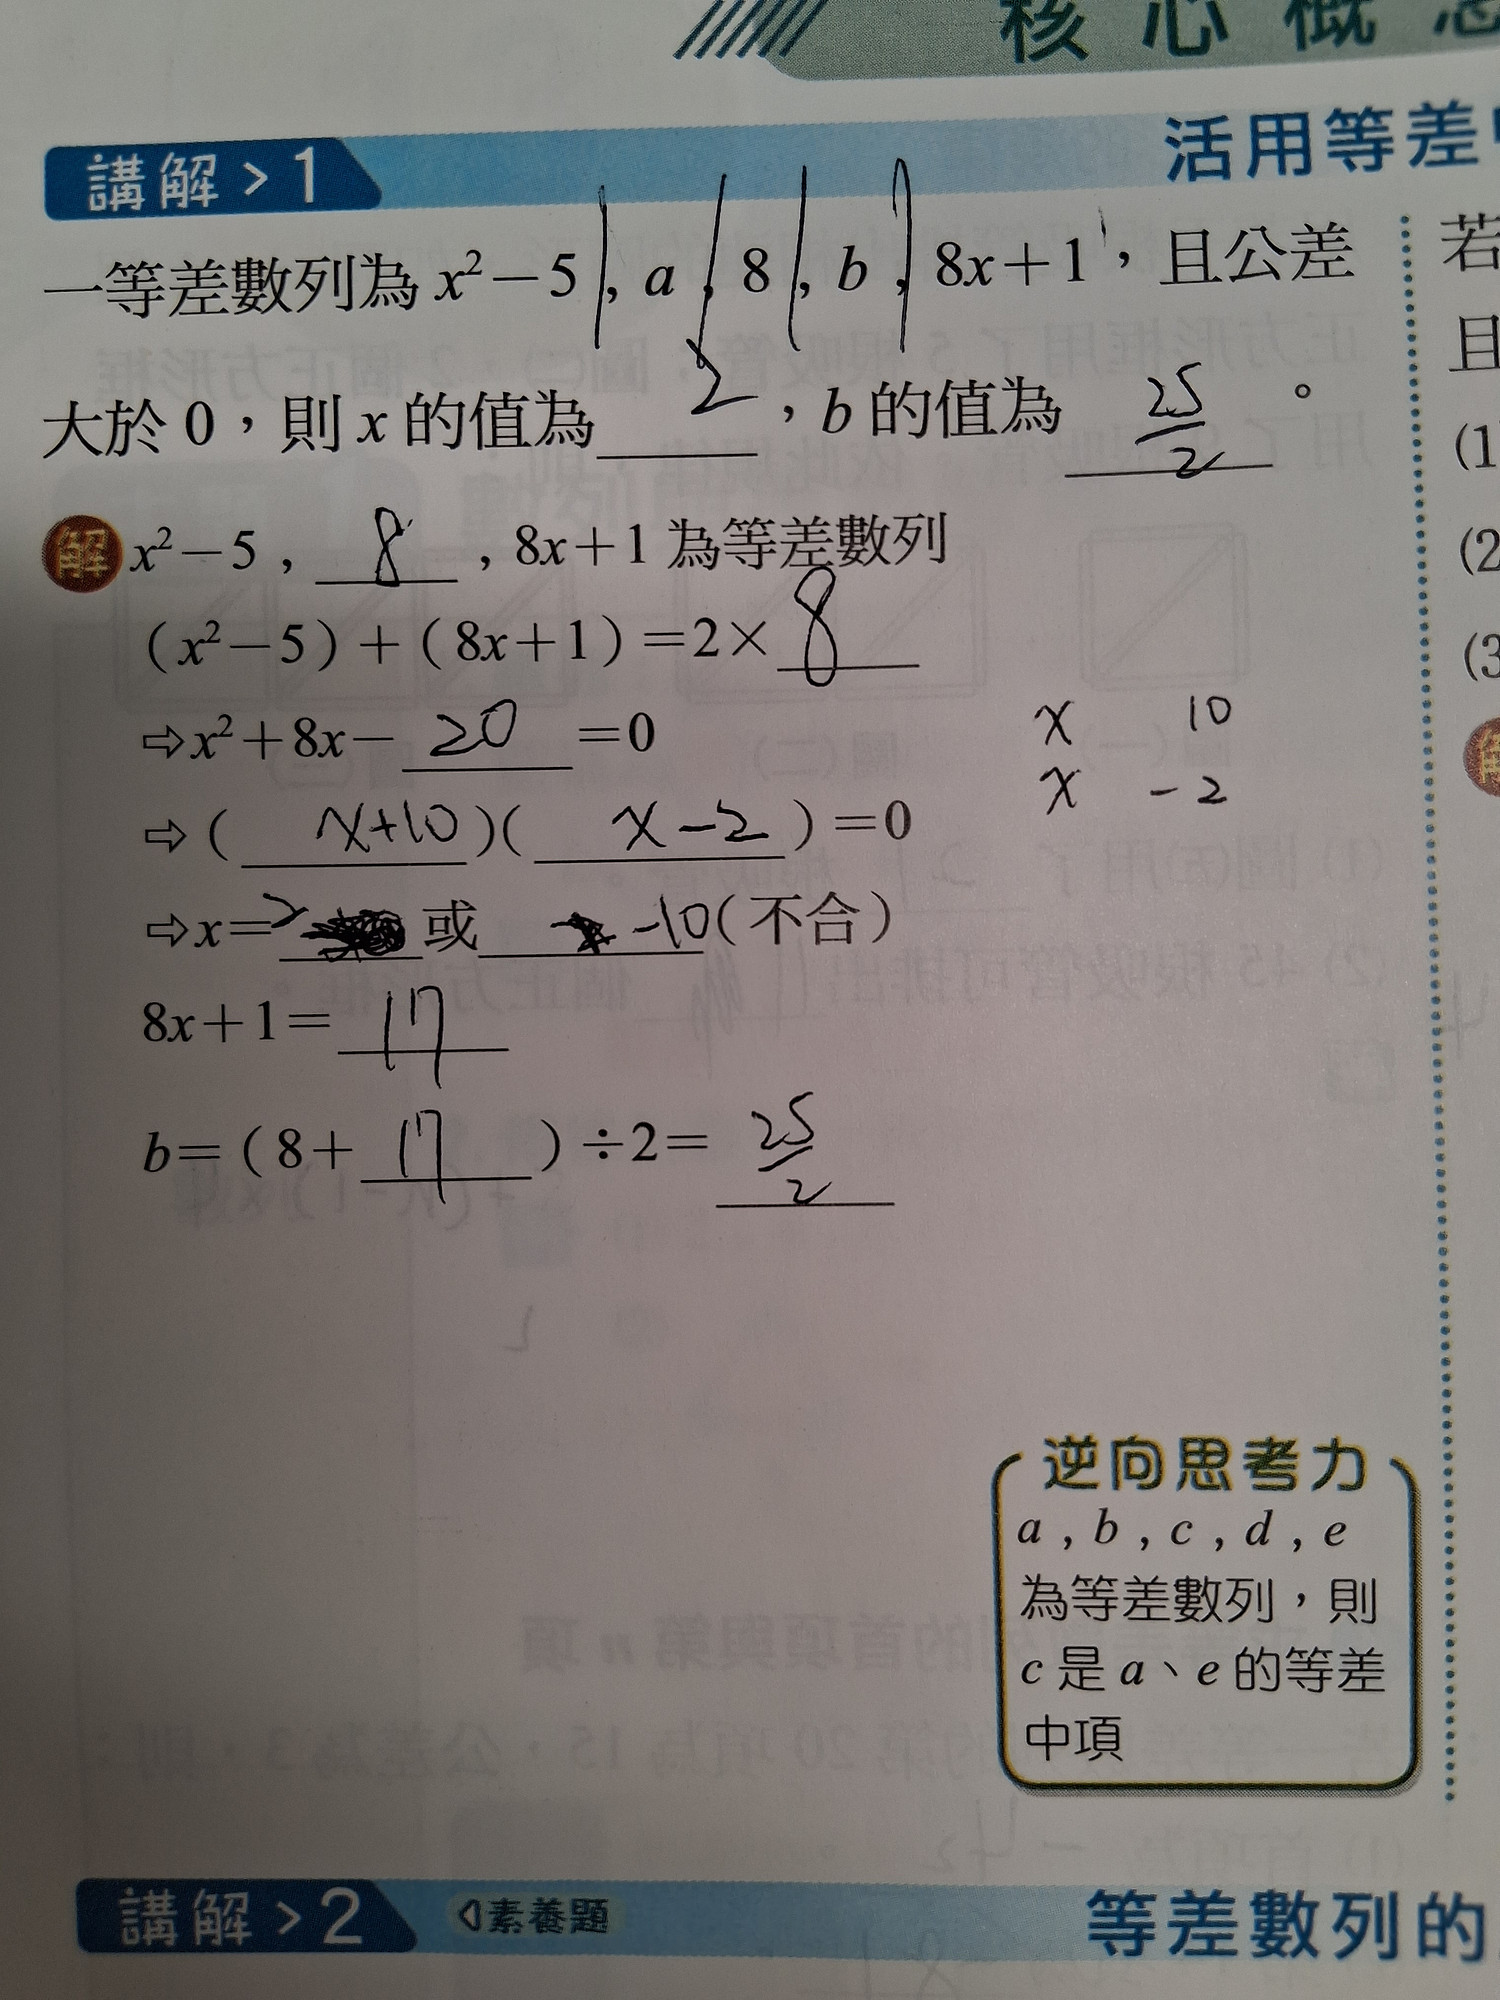 核心概念
講解＞1
活用等差
一等差數列為 x²－5 , a , 8 , b , 8x＋1，且公差
大於 0，則 x 的值為 2 ，b 的值為 25/2 。
解 x²－5 , 8 , 8x＋1 為等差數列
（x²－5）＋（8x＋1）＝2× 8
⇨x²＋8x－ 20 ＝0
x 10
x －2
⇨（ x+10 ）（ x－2 ）＝0
⇨x＝ 2 或 －10（不合）
8x＋1＝ 17
b＝（8＋ 17 ）÷2＝ 25/2
若
且
(1
(2
(3
解
逆向思考力
a , b , c , d , e
為等差數列，則
c 是 a、e 的等差
中項
講解＞2
◁素養題
等差數列的